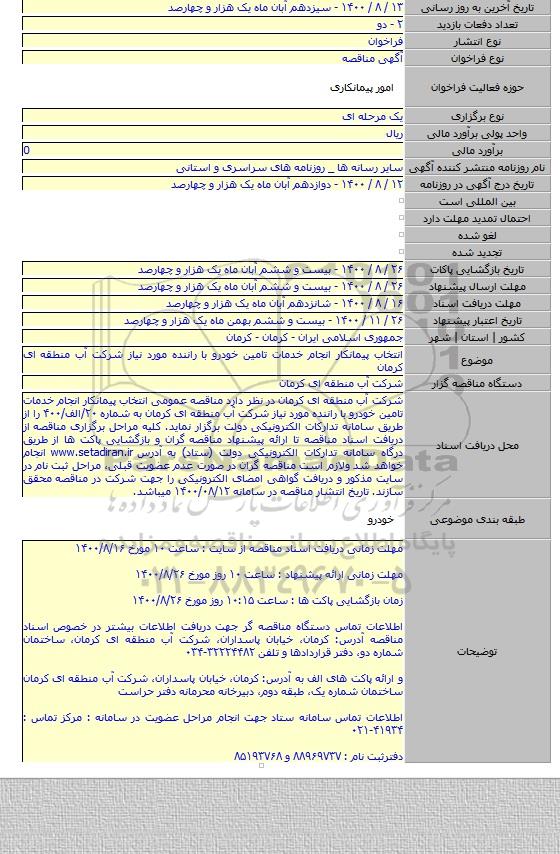 تاریخ آخرین به روز رسانی ۱۳ / ۸ / ۱۴۰۰ - سیزدهم آبان ماه یک هزار و چهارصد
تعداد دفعات بازدید ۲ - دو
نوع انتشار فراخوان
نوع فراخوان آگهی مناقصه
حوزه فعالیت فراخوان امور پیمانکاری
نوع برگزاری یک مرحله ای
واحد پولی برآورد مالی ریال
برآورد مالی 0
نام روزنامه منتشر کننده آگهی سایر رسانه ها _ روزنامه های سراسری و استانی
تاریخ درج آگهی در روزنامه ۱۲ / ۸ / ۱۴۰۰ - دوازدهم آبان ماه یک هزار و چهارصد
بین المللی است
احتمال تمدید مهلت دارد
لغو شده
تجدید شده
تاریخ بازگشایی پاکات ۲۶ / ۸ / ۱۴۰۰ - بیست و ششم آبان ماه یک هزار و چهارصد
مهلت ارسال پیشنهاد ۲۶ / ۸ / ۱۴۰۰ - بیست و ششم آبان ماه یک هزار و چهارصد
مهلت دریافت اسناد ۱۶ / ۸ / ۱۴۰۰ - شانزدهم آبان ماه یک هزار و چهارصد
تاریخ اعتبار پیشنهاد ۲۶ / ۱۱ / ۱۴۰۰ - بیست و ششم بهمن ماه یک هزار و چهارصد
کشور | استان | شهر جمهوری اسلامی ایران - کرمان - کرمان
موضوع انتخاب پیمانکار انجام خدمات تامین خودرو با راننده مورد نیاز شرکت آب منطقه ای
کرمان
دستگاه مناقصه گزار شرکت آب منطقه ای کرمان
محل دریافت اسناد
شرکت آب منطقه ای کرمان در نظر دارد مناقصه عمومی انتخاب پیمانکار انجام خدمات
تامین خودرو با راننده مورد نیاز شرکت آب منطقه ای کرمان به شماره ۲۰/الف/۴۰۰ را از
طریق سامانه تدارکات الکترونیکی دولت برگزار نماید. کلیه مراحل برگزاری مناقصه از
دریافت اسناد مناقصه تا ارائه پیشنهاد مناقصه گران و بازگشایی پاکت ها از طریق
درگاه سامانه تدارکات الکترونیکی دولت (ستاد) به آدرس www.setadiran.ir انجام
خواهد شد ولازم است مناقصه گران در صورت عدم عضویت قبلی، مراحل ثبت نام در
سایت مذکور و دریافت گواهی امضای الکترونیکی را جهت شرکت در مناقصه محقق
سازند. تاریخ انتشار مناقصه در سامانه ۱۴۰۰/۰۸/۱۲ میباشد.
طبقه بندی موضوعی خودرو
توضیحات
مهلت زمانی دریافت اسناد مناقصه از سایت : ساعت ۱۰ مورخ ۱۴۰۰/۸/۱۶
مهلت زمانی ارائه پیشنهاد : ساعت ۱۰ روز مورخ ۱۴۰۰/۸/۲۶
زمان بازگشایی پاکت ها : ساعت ۱۰:۱۵ روز مورخ ۱۴۰۰/۸/۲۶
اطلاعات تماس دستگاه مناقصه گر جهت دریافت اطلاعات بیشتر در خصوص اسناد
مناقصه آدرس: کرمان، خیابان پاسداران، شرکت آب منطقه ای کرمان، ساختمان
شماره دو، دفتر قراردادها و تلفن ۳۲۲۲۴۴۸۲-۰۳۴
و ارائه پاکت های الف به آدرس: کرمان، خیابان پاسداران، شرکت آب منطقه ای کرمان
ساختمان شماره یک، طبقه دوم، دبیرخانه محرمانه دفتر حراست
اطلاعات تماس سامانه ستاد جهت انجام مراحل عضویت در سامانه : مرکز تماس :
۴۱۹۳۴-۰۲۱
دفترثبت نام : ۸۸۹۶۹۷۳۷ و ۸۵۱۹۳۷۶۸
پایگاه اطلاع رسانی مناقصه و مزایده
۰۲۱-۸۸۳۴۹۶۷۰-۵